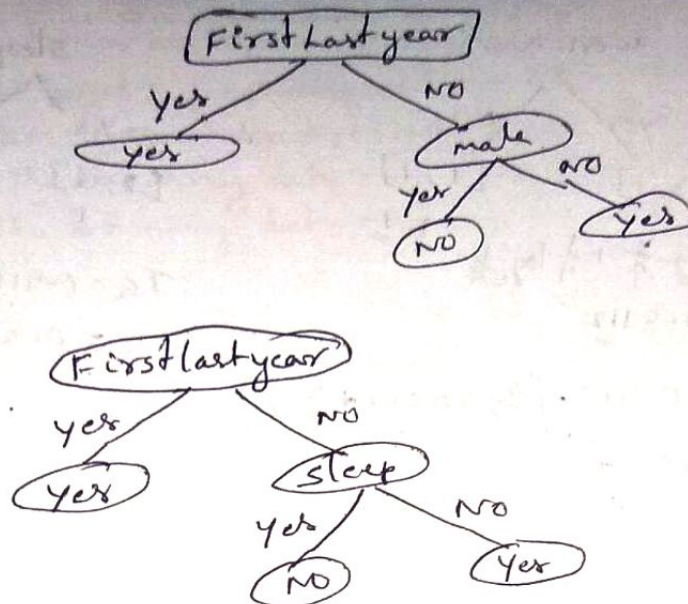 First Last year
Yes
NO
Yes
male
Yes
NO
NO
Yes
First last year
Yes
NO
Yes
sleep
Yes
NO
NO
Yes